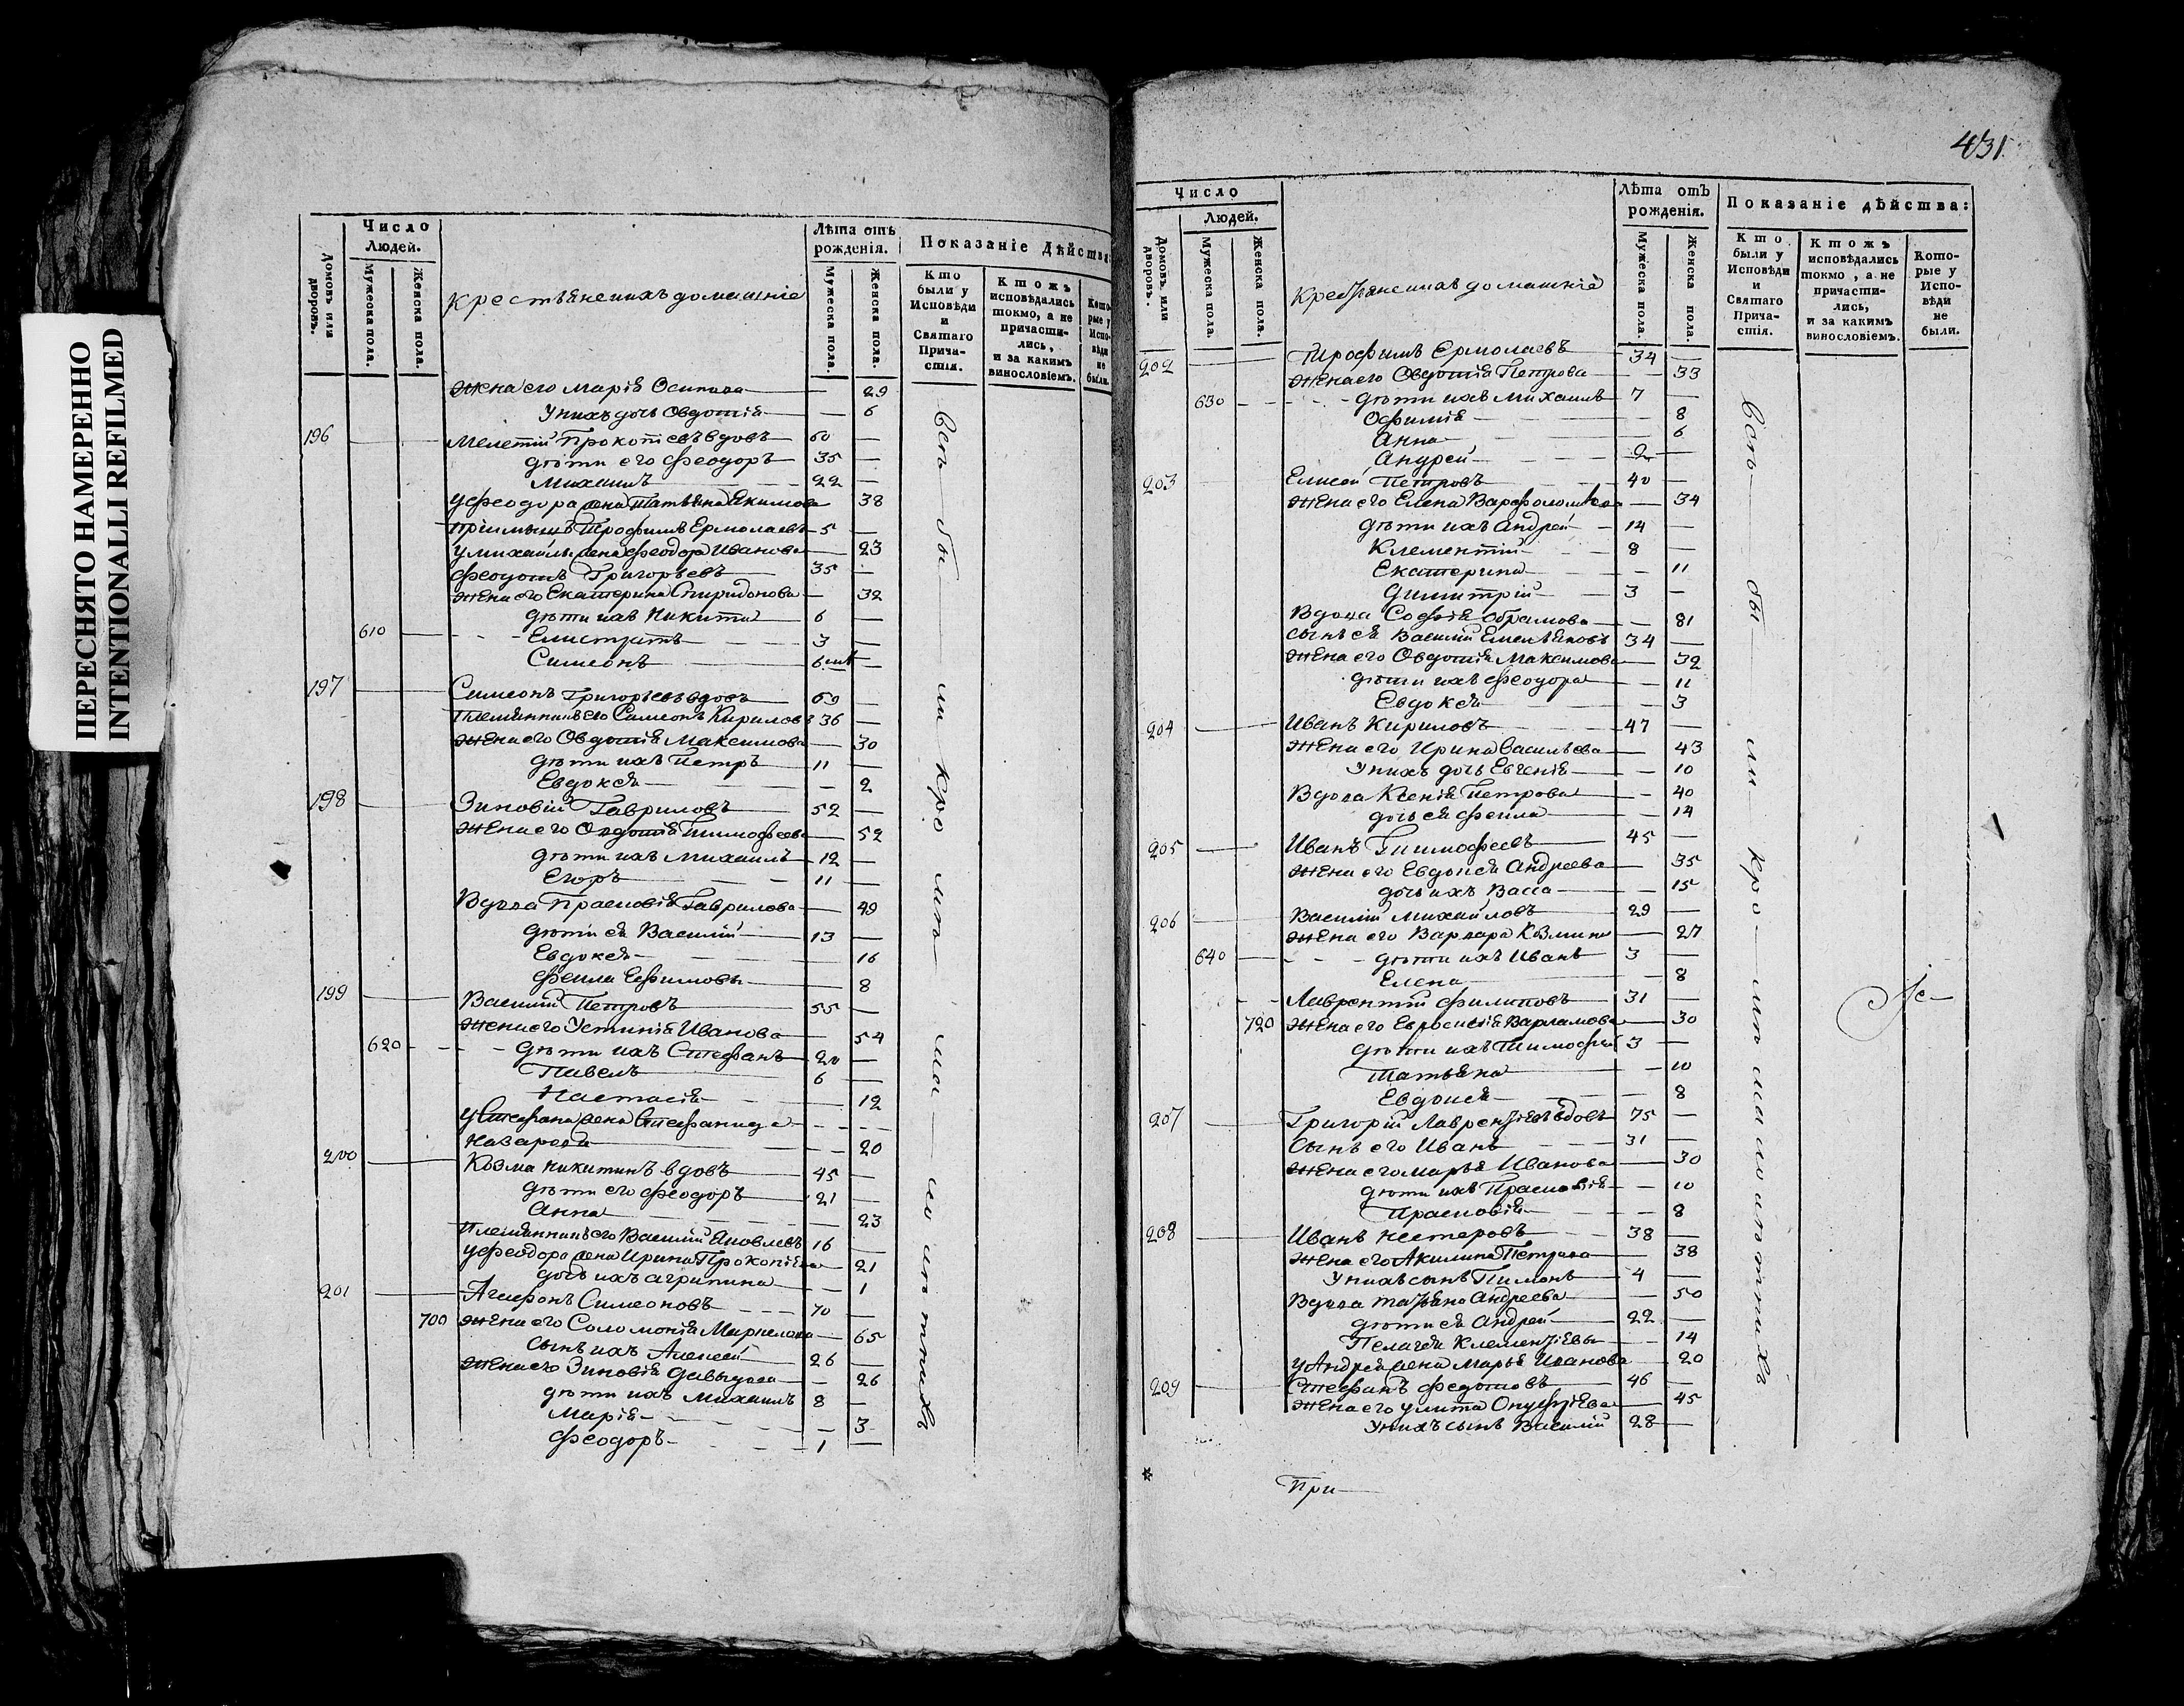 ПЕРЕСНЯТО НАМЕРЕННО
INTENTIONALLI REFILMED
Число
Людей.
Домовъ или дворовъ.
Мужеска пола.
Женска пола.
Крестьяне и ихъ домашніе
Лѣта отъ рожденія.
Мужеска пола.
Женска пола.
Показаніе дѣйства:
Кто были у Исповѣди и Святаго Причастія.
Ктожъ исповѣдались токмо, а не причастились, и за какимъ винословіемъ.
Которые у Исповѣди не были.
жена его Марія Осипова — 29
У нихъ дочь Овдотія — 6
196 Мелетій Прокопіевъ вдовъ 60 —
дѣти его Феодоръ 35 —
Михаилъ 22 —
У Феодора жена Татьяна Екимова 38
пріимышъ Трофимъ Ермолаевъ 5 —
У Михаилы жена Феодора Иванова — 23
Феодотъ Григорьевъ 35 —
жена его Екатерина Спиридонова — 32
дѣти ихъ Никита 6 —
610 Елистратъ 3 —
Симеонъ 6 —
197 Симеонъ Григорьевъ вдовъ 69 —
Племянникъ его Симеонъ Кириловъ 36 —
жена его Овдотія Максимова — 30
дѣти ихъ Петръ 11 —
Евдокея — 2
198 Зиновій Гавриловъ 52 —
жена его Овдотія Тимофеева — 52
дѣти ихъ Михаилъ 12 —
Егоръ 11 —
Вдова Прасковія Гаврилова — 49
дѣти ея Василій 13 —
Евдокея — 16
Фекла Ефимовы — 8
199 Василій Петровъ 55 —
жена его Устинія Иванова — 54
620 дѣти ихъ Стефанъ 20 —
Павелъ 6 —
Настасія — 12
У Стефана жена Стефанида
Назарова — 20
200 Козма Никитинъ вдовъ 45 —
дѣти его Феодоръ 21 —
Анна — 23
Племянникъ его Василій Яковлевъ 16 —
У Феодора жена Ирина Прокопіева — 21
дочь ихъ Агрипина — 1
201 Агафонъ Симеоновъ 70 —
700 жена его Соломонія Маркелова — 65
сынъ ихъ Алексей 26 —
жена его Зиновія Давыдова — 26
дѣти ихъ Михаилъ 8 —
Марія — 3
Феодоръ 1 —
431
Число
Людей.
Домовъ или дворовъ.
Мужеска пола.
Женска пола.
Крестьяне и ихъ домашніе
Лѣта отъ рожденія.
Мужеска пола.
Женска пола.
Показаніе дѣйства:
Кто были у Исповѣди и Святаго Причастія.
Ктожъ исповѣдались токмо, а не причастились, и за какимъ винословіемъ.
Которые у Исповѣди не были.
202 Трофимъ Ермолаевъ 34 —
жена его Овдотія Петрова — 33
630 дѣти ихъ Михаилъ 7 —
Офимія — 8
Анна — 6
Андрей 2 —
203 Елисей Петровъ 40 —
жена его Елена Варфоломѣева — 34
дѣти ихъ Андрей 14 —
Клементій 8 —
Екатерина — 11
Димитрій 3 —
Вдова Софія Обрамова — 81
сынъ ея Василій Емельяновъ 34 —
жена его Овдотія Максимова — 32
дѣти ихъ Феодора — 11
Евдокея — 3
204 Иванъ Кириловъ 47 —
жена его Ирина Васильева — 43
У нихъ дочь Евгенія — 10
Вдова Ксенія Петрова — 40
дочь ея Фекла — 14
205 Иванъ Тимофеевъ 45 —
жена его Евдокея Андреева — 35
дочь ихъ Васса — 15
206 Василій Михайловъ 29 —
жена его Варвара Козмина — 27
640 дѣти ихъ Иванъ 3 —
Елена — 8
Лаврентій Филиповъ 31 —
720 жена его Евросинія Варламова — 30
дѣти ихъ Тимофей 3 —
Татьяна — 10
Евдокея — 8
207 Григорій Лаврентіевъ вдовъ 75 —
Сынъ его Иванъ 31 —
жена его Марья Иванова — 30
дѣти ихъ Прасковія — 10
Прасковія — 8
208 Иванъ Нестеровъ 38 —
жена его Акилина Петрова — 38
У нихъ сынъ Пименъ 4 —
Вдова Татьяна Андреева — 50
дѣти ея Андрей 22 —
Пелагея Клементіевы — 14
У Андрея жена Марья Иванова — 20
209 Стефанъ Федотовъ 46 —
жена его Улита Онуфріева — 45
У нихъ сынъ Василій 28 —
При